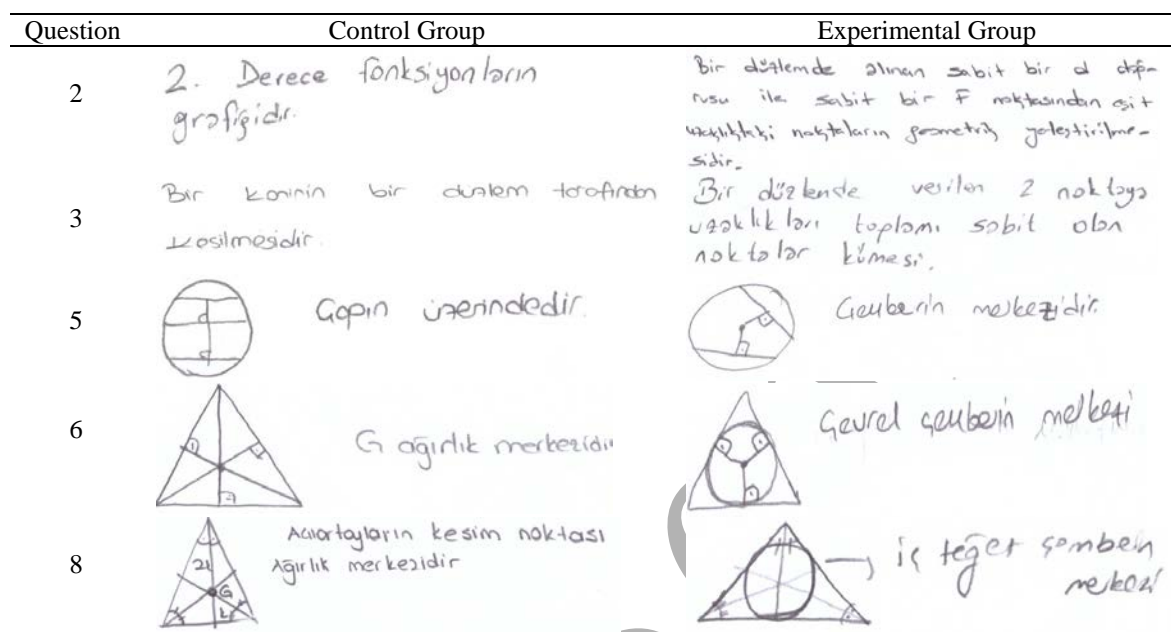 Question Control Group Experimental Group
2
2. Derece fonksiyonların
grafiğidir.
Bir düzlemde alınan sabit bir d doğ-
rusu ile sabit bir F noktasından eşit
uzaklıktaki noktaların geometrik yeleştirilme-
sidir.
3
Bir koninin bir düzlem tarafından
kesilmesidir.
Bir düzlemde verilen 2 noktaya
uzaklıkları toplamı sabit olan
noktalar kümesi.
5
Çapın üzerindedir.
Çemberin merkezidir.
6
G ağırlık merkezidir
Çevrel çemberin merkezi
8
Açıortayların kesim noktası
Ağırlık merkezidir
2k
G
k
iç teğet çemberin
merkezi